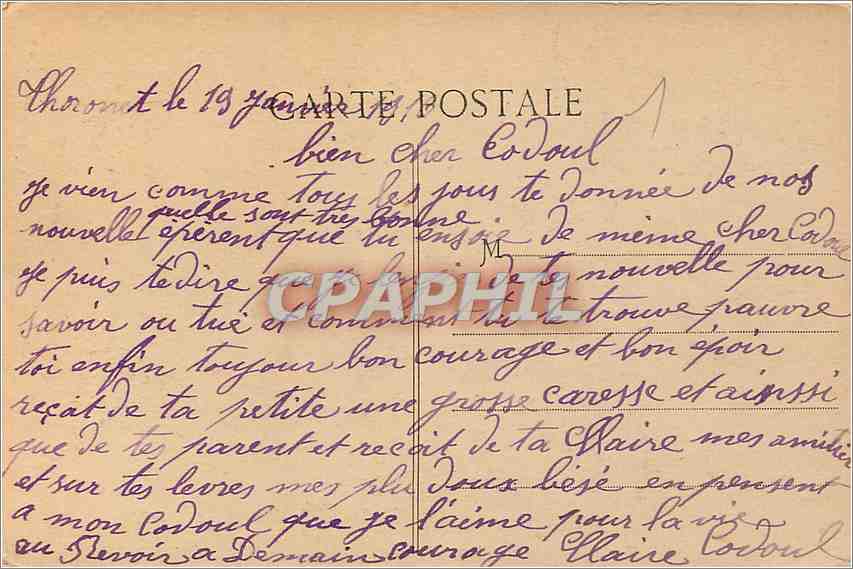 Thoronet le 19 Janvier 191
CARTE POSTALE
bien cher Codoul
Je vien comme tous les jours te donnée de nos
quelle sont très bonne
nouvelle épèrent que tu ensoie de même cher Codoul
M
Je puis te dire que je de te nouvelle pour
CPAPHIL
savoir ou tue et comment tu te trouve pauvre
toi enfin toujour bon courage et bon époir
reçoit de ta petite une grosse caresse et ainssi
que de tes parent et reçoit de ta Claire mes amitier
et sur tes levres mes plu doux bésé en pensent
a mon Codoul que je l'aime pour la vie
au Revoir a Demain courage Claire Codoul